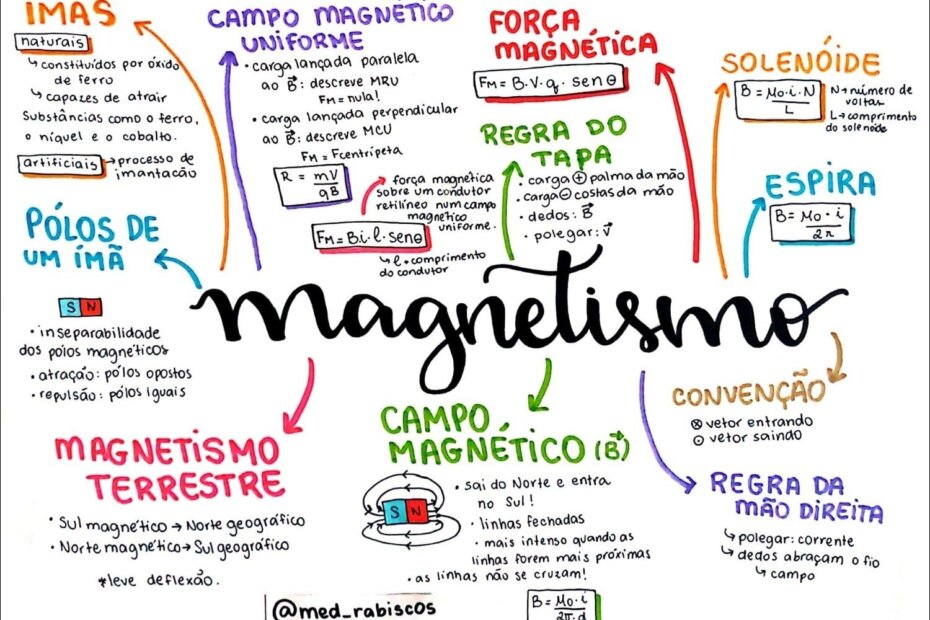 IMÃS
naturais
↳ constituídos por óxido
de ferro
↳ capazes de atrair
Substâncias como o ferro,
o níquel e o cobalto.
artificiais → processo de
imantação
CAMPO MAGNÉTICO
UNIFORME
• carga lançada paralela
ao B⃗: descreve MRU
FM = nula!
• carga lançada perpendicular
ao B⃗: descreve MCU
FM = Fcentrípeta
R = mV
qB
força magnética
sobre um condutor
retilíneo num campo
magnético
uniforme.
FM = B.i.l.senθ
↳ l → comprimento
do condutor
FORÇA
MAGNÉTICA
FM = B.V.q. senθ
REGRA DO
TAPA
• carga ⊕ palma da mão
• carga ⊖ costas da mão
• dedos: B⃗
• polegar: v⃗
SOLENÓIDE
B = Mo.i.N
L
N → número de
voltas
L → comprimento
do solenoide
ESPIRA
B = Mo . i
2r
PÓLOS DE
UM ÍMÃ
S N
• inseparabilidade
dos polos magnéticos
• atração: pólos opostos
• repulsão: pólos iguais
magnetismo
MAGNETISMO
TERRESTRE
• Sul magnético → Norte geográfico
• Norte magnético → Sul geográfico
*leve deflexão.
CAMPO
MAGNÉTICO (B⃗)
S N
• sai do Norte e entra
no Sul!
• linhas fechadas
• mais intenso quando as
linhas forem mais próximas
• as linhas não se cruzam!
B = Mo.i
2π.d
CONVENÇÃO
⊗ vetor entrando
⊙ vetor saindo
REGRA DA
MÃO DIREITA
↳ polegar: corrente
↳ dedos abraçam o fio
↳ campo
@med_rabiscos